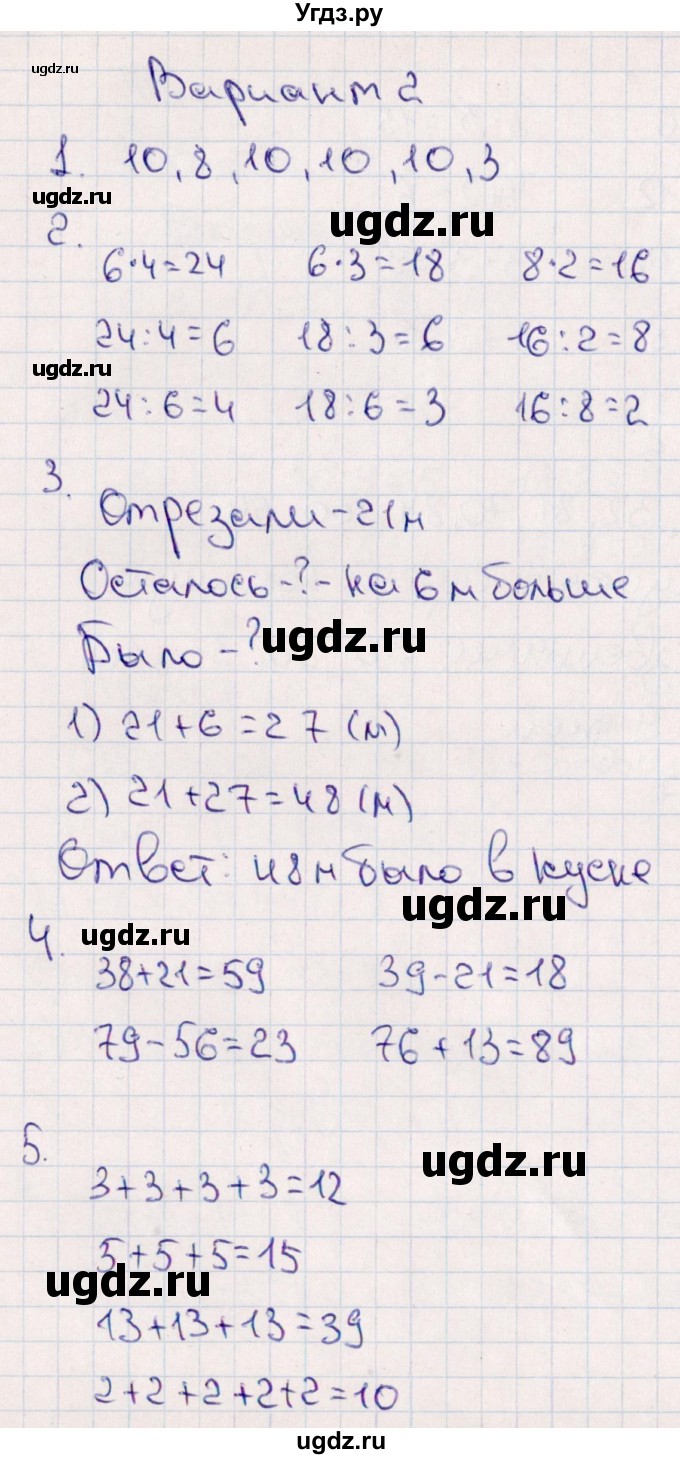 Угдз.ру
ugdz.ru
Вариант 2
1. 10, 8, 10, 10, 10, 3
ugdz.ru
ugdz.ru
2.
6·4=24 6·3=18 8·2=16
24:4=6 18:3=6 16:2=8
ugdz.ru
24:6=4 18:6=3 16:8=2
3.
Отрезали-21м
Осталось-?-на 6 м больше
ugdz.ru
Было-?
1) 21+6=27 (м)
2) 21+27=48 (м)
Ответ: 48 м было в куске
ugdz.ru
4.
ugdz.ru
38+21=59 39-21=18
79-56=23 76+13=89
5.
ugdz.ru
3+3+3+3=12
5+5+5=15
ugdz.ru
13+13+13=39
2+2+2+2+2=10
ugdz.ru